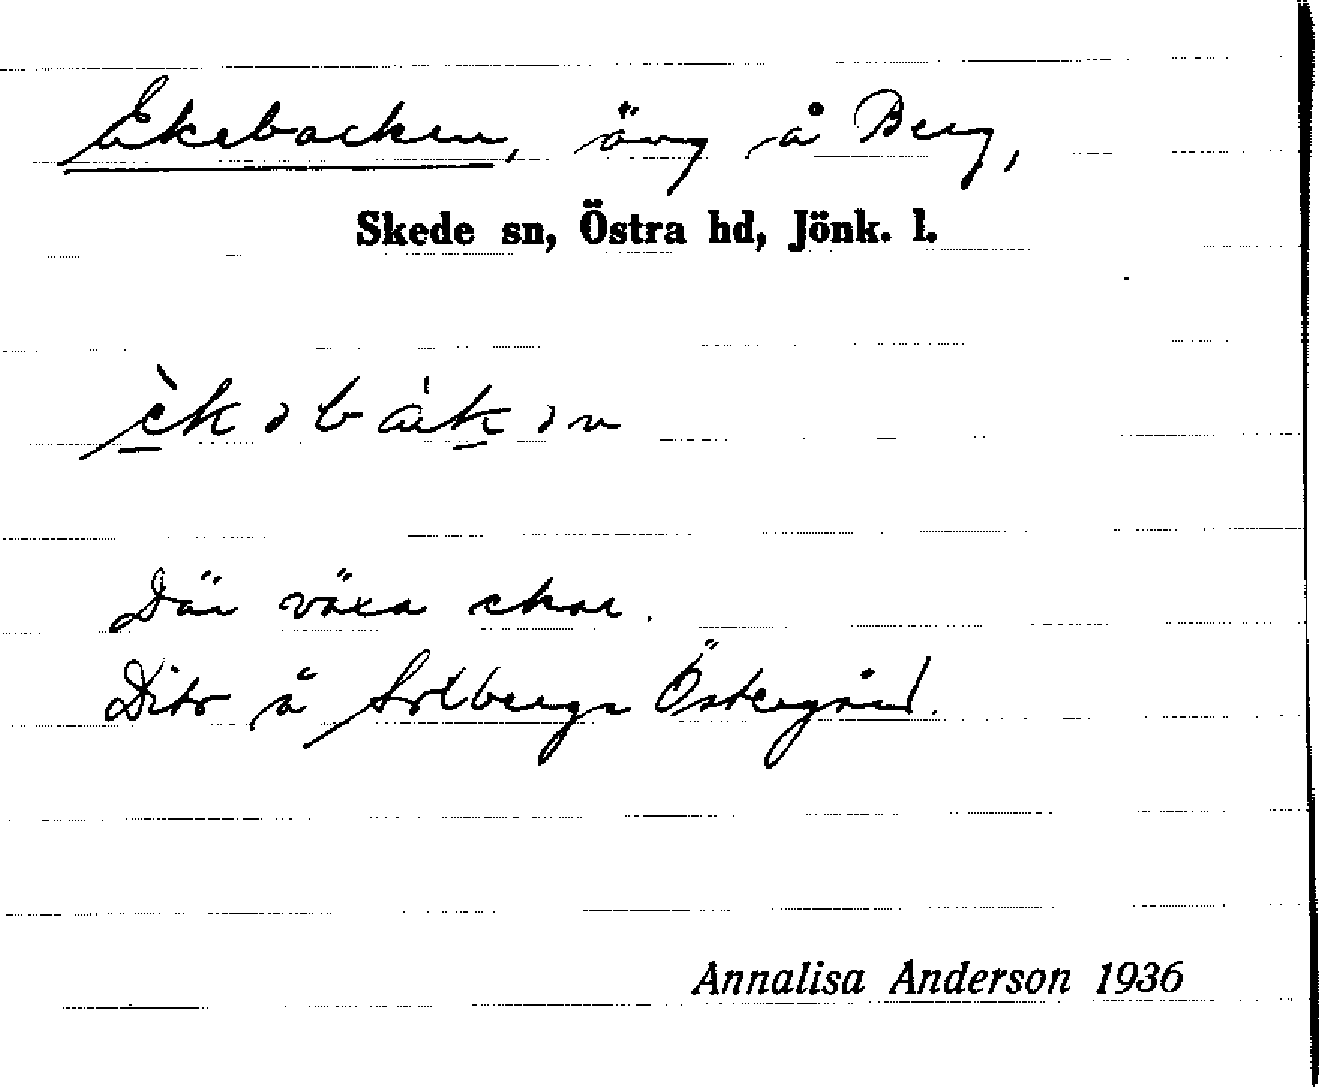 Ekebacken, äng å Berg,
Skede sn, Östra hd, Jönk. l.
Där växa ekar.
Dito å Solberga Östergård.
Annalisa Anderson 1936